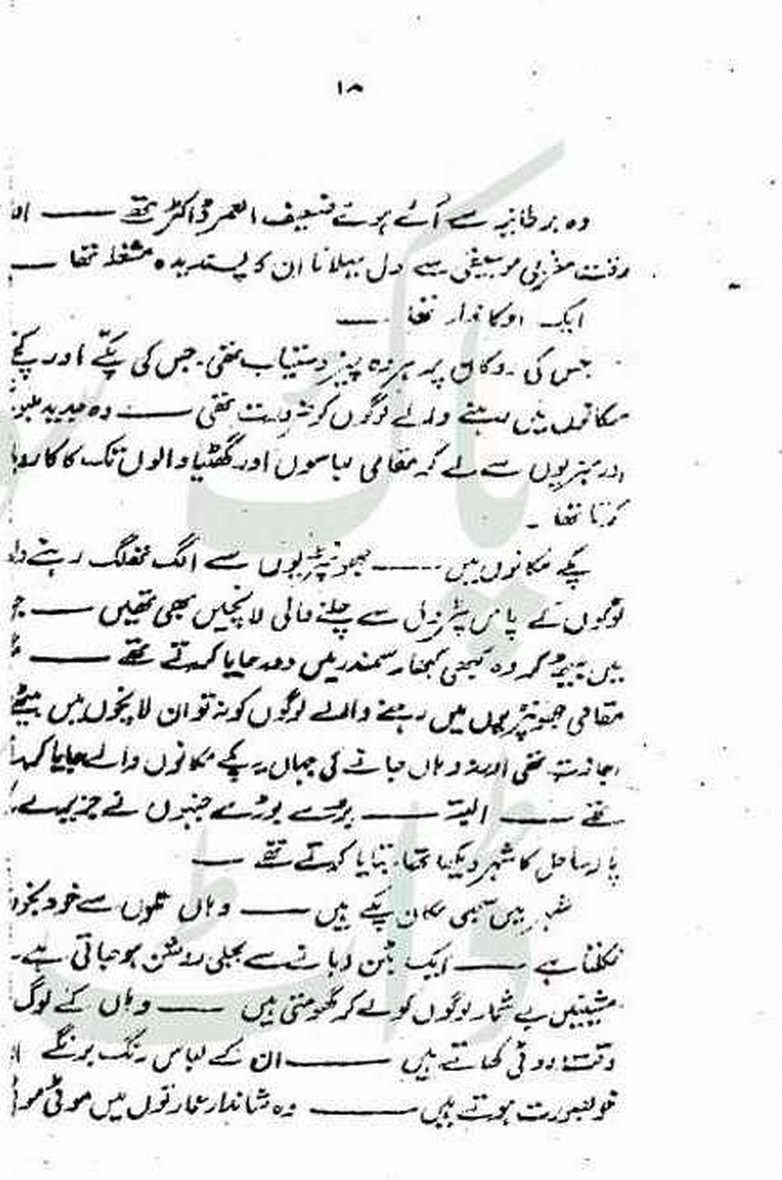 ۱۸
وہ برطانیہ سے آئے ہوئے ضعیف العمر ڈاکٹر تھے ——
وقت مغربی موسیقی سے دل بہلانا ان کا پسندیدہ مشغلہ تھا —
ایک دوکاندار تھا —
جس کی دوکان پر ہر وہ چیز دستیاب تھی۔ جس کی پکے اور کچے
مکانوں میں رہنے والے لوگوں کو ضرورت تھی —— وہ جدید
اور مشینوں سے لے کر مقامی لباسوں اور گھٹیا والوں تک کا
کرتا تھا۔
پکے مکانوں میں —— جھونپڑیوں سے الگ تھلگ رہنے
لوگوں کے پاس پٹرول سے چلنے والی لانچیں بھی تھیں ——
میں بیٹھ کر وہ کبھی کبھار سمندر میں دور جایا کرتے تھے ——
مقامی جھونپڑیوں میں رہنے والے لوگوں کو نہ تو ان لانچوں میں بیٹھنے
اجازت تھی اور نہ وہاں جانے کی جہاں پکے مکانوں والے جایا
تھے —— البتہ —— بوڑھے بوڑھے جنہوں نے جزیرے
پار ساحل کا شہر دیکھا تھا۔ بتایا کرتے تھے —
شہر میں سبھی مکان پکے ہیں —— وہاں نلوں سے خود بخود
نکلتا ہے —— ایک بٹن دبانے سے بجلی روشن ہو جاتی ہے۔
مشینیں بے شمار لوگوں کو لے کر گھومتی ہیں —— وہاں کے لوگ
وقت روٹی کھاتے ہیں —— ان کے لباس رنگ برنگے
خوبصورت ہوتے ہیں —— وہ شاندار عمارتوں میں موٹی
پاک